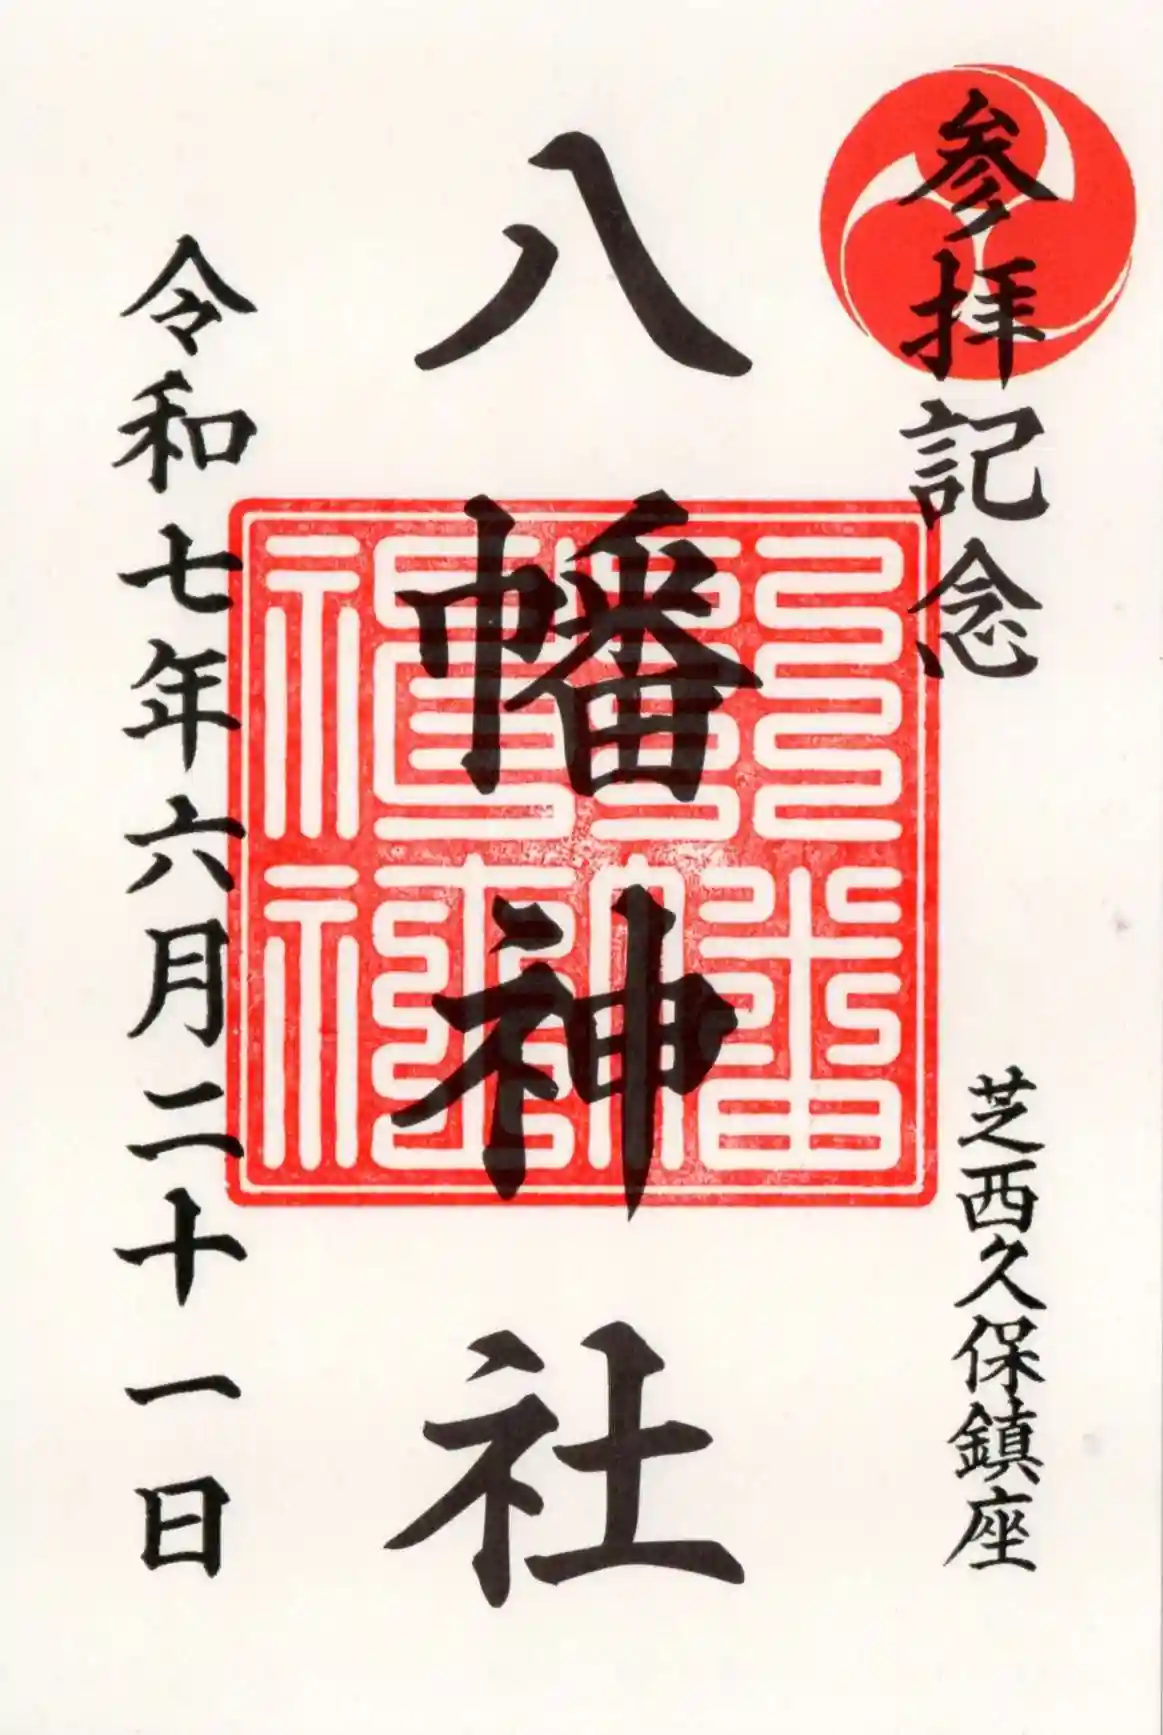 参拝記念
芝西久保鎮座
八幡神社
令和七年六月二十一日